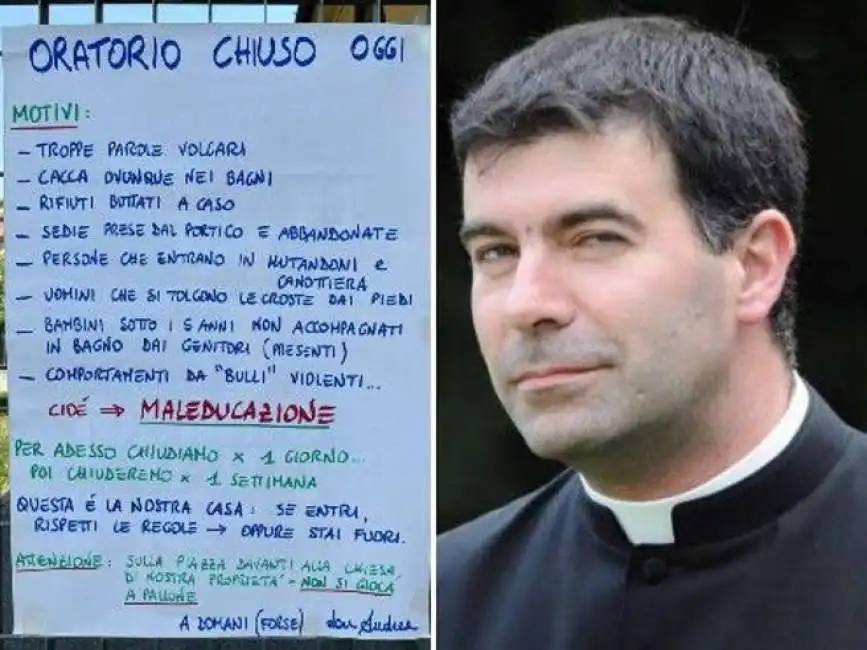 ORATORIO CHIUSO OGGI
MOTIVI:
- TROPPE PAROLE VOLGARI
- CACCA OVUNQUE NEI BAGNI
- RIFIUTI BUTTATI A CASO
- SEDIE PRESE DAL PORTICO E ABBANDONATE
- PERSONE CHE ENTRANO IN MUTANDONI E
CANOTTIERA
- UOMINI CHE SI TOLGONO LE CROSTE DAI PIEDI
- BAMBINI SOTTO I 5 ANNI NON ACCOMPAGNATI
IN BAGNO DAI GENITORI (PRESENTI)
- COMPORTAMENTI DA "BULLI" VIOLENTI...
CIOÉ ⇒ MALEDUCAZIONE
PER ADESSO CHIUDIAMO × 1 GIORNO...
POI CHIUDEREMO × 1 SETTIMANA
QUESTA É LA NOSTRA CASA: SE ENTRI,
RISPETTI LE REGOLE → OPPURE STAI FUORI.
ATTENZIONE: SULLA PIAZZA DAVANTI ALLA CHIESA
DI NOSTRA PROPRIETA' - NON SI GIOCA
A PALLONE
A DOMANI (FORSE) don Andrea